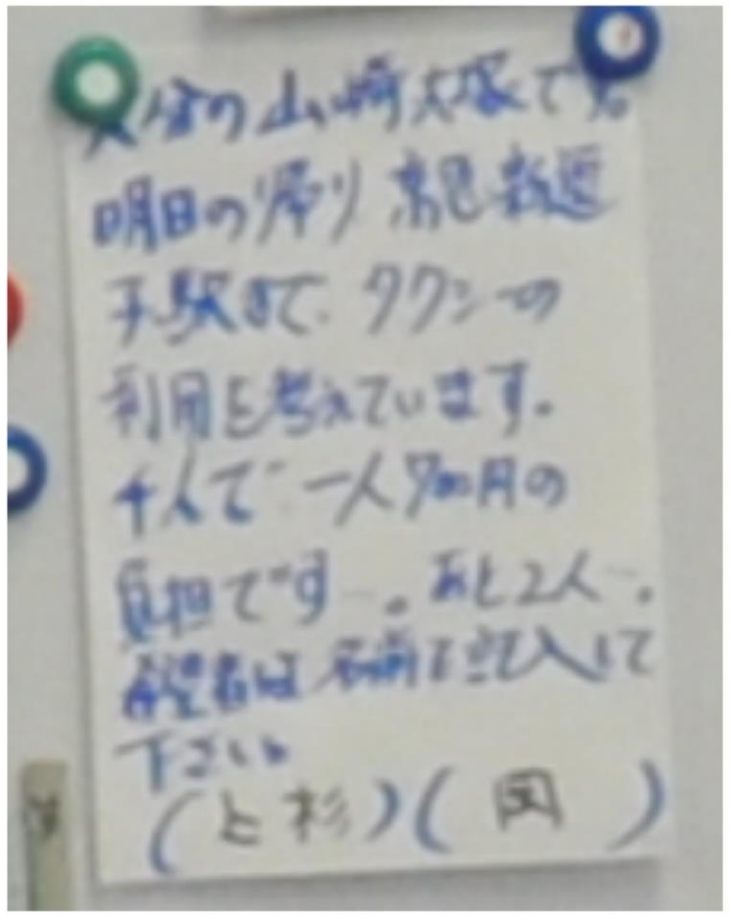 大分の山崎大塚です。
明日の帰り 京急新逗
子駅まで タクシーの
利用を考えています。
4人で 一人 円の
負担です…。あと2人…。
希望者は 名前を記入して
下さい
(上杉)(岡)